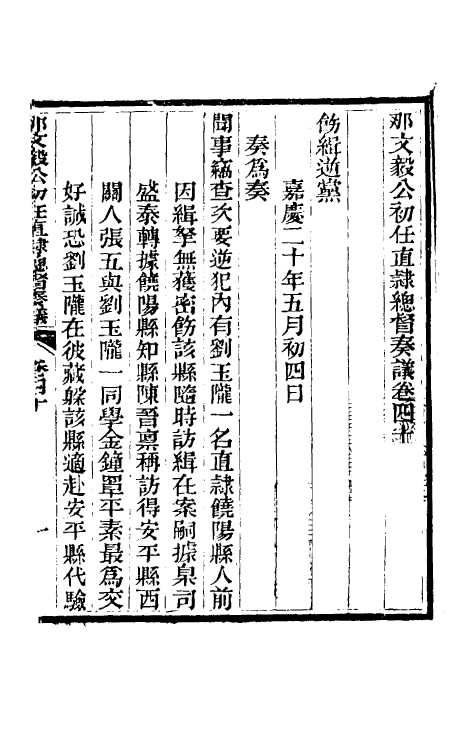 那文毅公初任直隸總督奏議卷四十
飭緝逆黨
嘉慶二十年五月初四日
奏爲奏
聞事竊查次要逆犯內有劉玉隴一名直隸饒陽縣人前
因緝拏無獲密飭該縣隨時訪緝在案嗣據臬司
盛泰轉據饒陽縣知縣陳晉稟稱訪得安平縣西
關人張五與劉玉隴一同學金鐘罩平素最爲交
好誠恐劉玉隴在彼藏躲該縣適赴安平縣代驗
那文毅公初任直隸總督奏議
卷四十
一